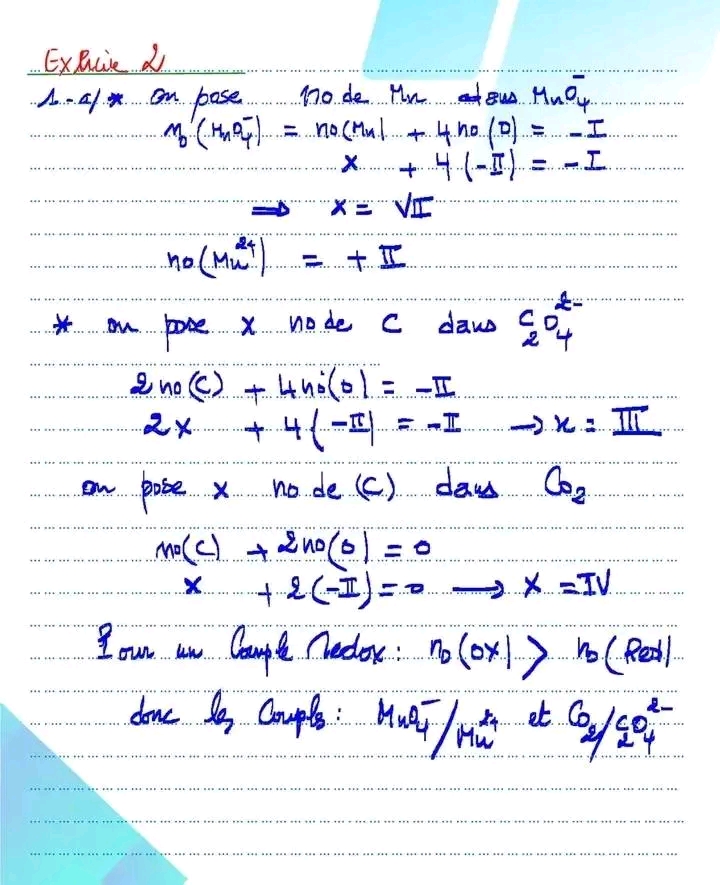 Exercice 2
1-a/ * on pose no de Mn dans MnO₄⁻
no(MnO₄⁻) = no(Mn) + 4no(O) = -I
x + 4(-II) = -I
⟹ x = VII
no(Mn²⁺) = + II
* on pose x no de C dans C₂O₄²⁻
2no(C) + 4no(O) = -II
2x + 4(-II) = -II → x = III
on pose x no de (C) dans CO₂
no(C) + 2no(O) = 0
x + 2(-II) = 0 → x = IV
Pour un Couple redox : no(ox) > no(Red)
donc les Couples : MnO₄⁻/Mn²⁺ et CO₂/C₂O₄²⁻